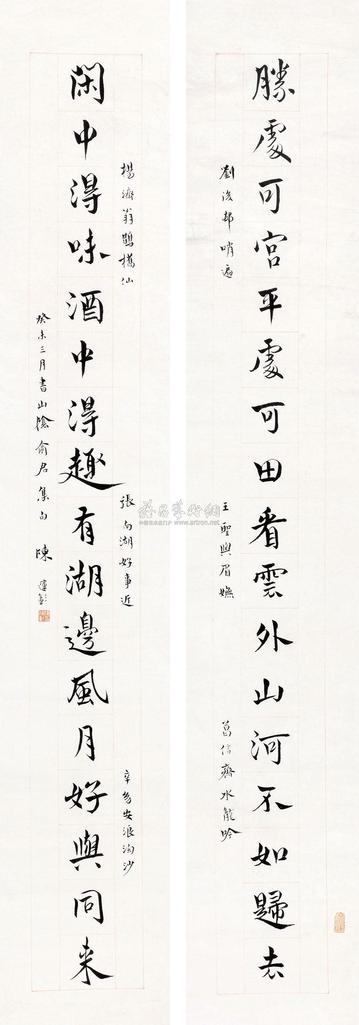 勝處可宮平處可田看雲外山河不如歸去
劉後邨哨遍
王聖與眉嫵
葛信齋水龍吟
閑中得味酒中得趣有湖邊風月好與同來
楊濟翁鵲橋仙
張于湖好事近
辛幼安浪淘沙
癸未三月書山陰俞君集句 陳運彰